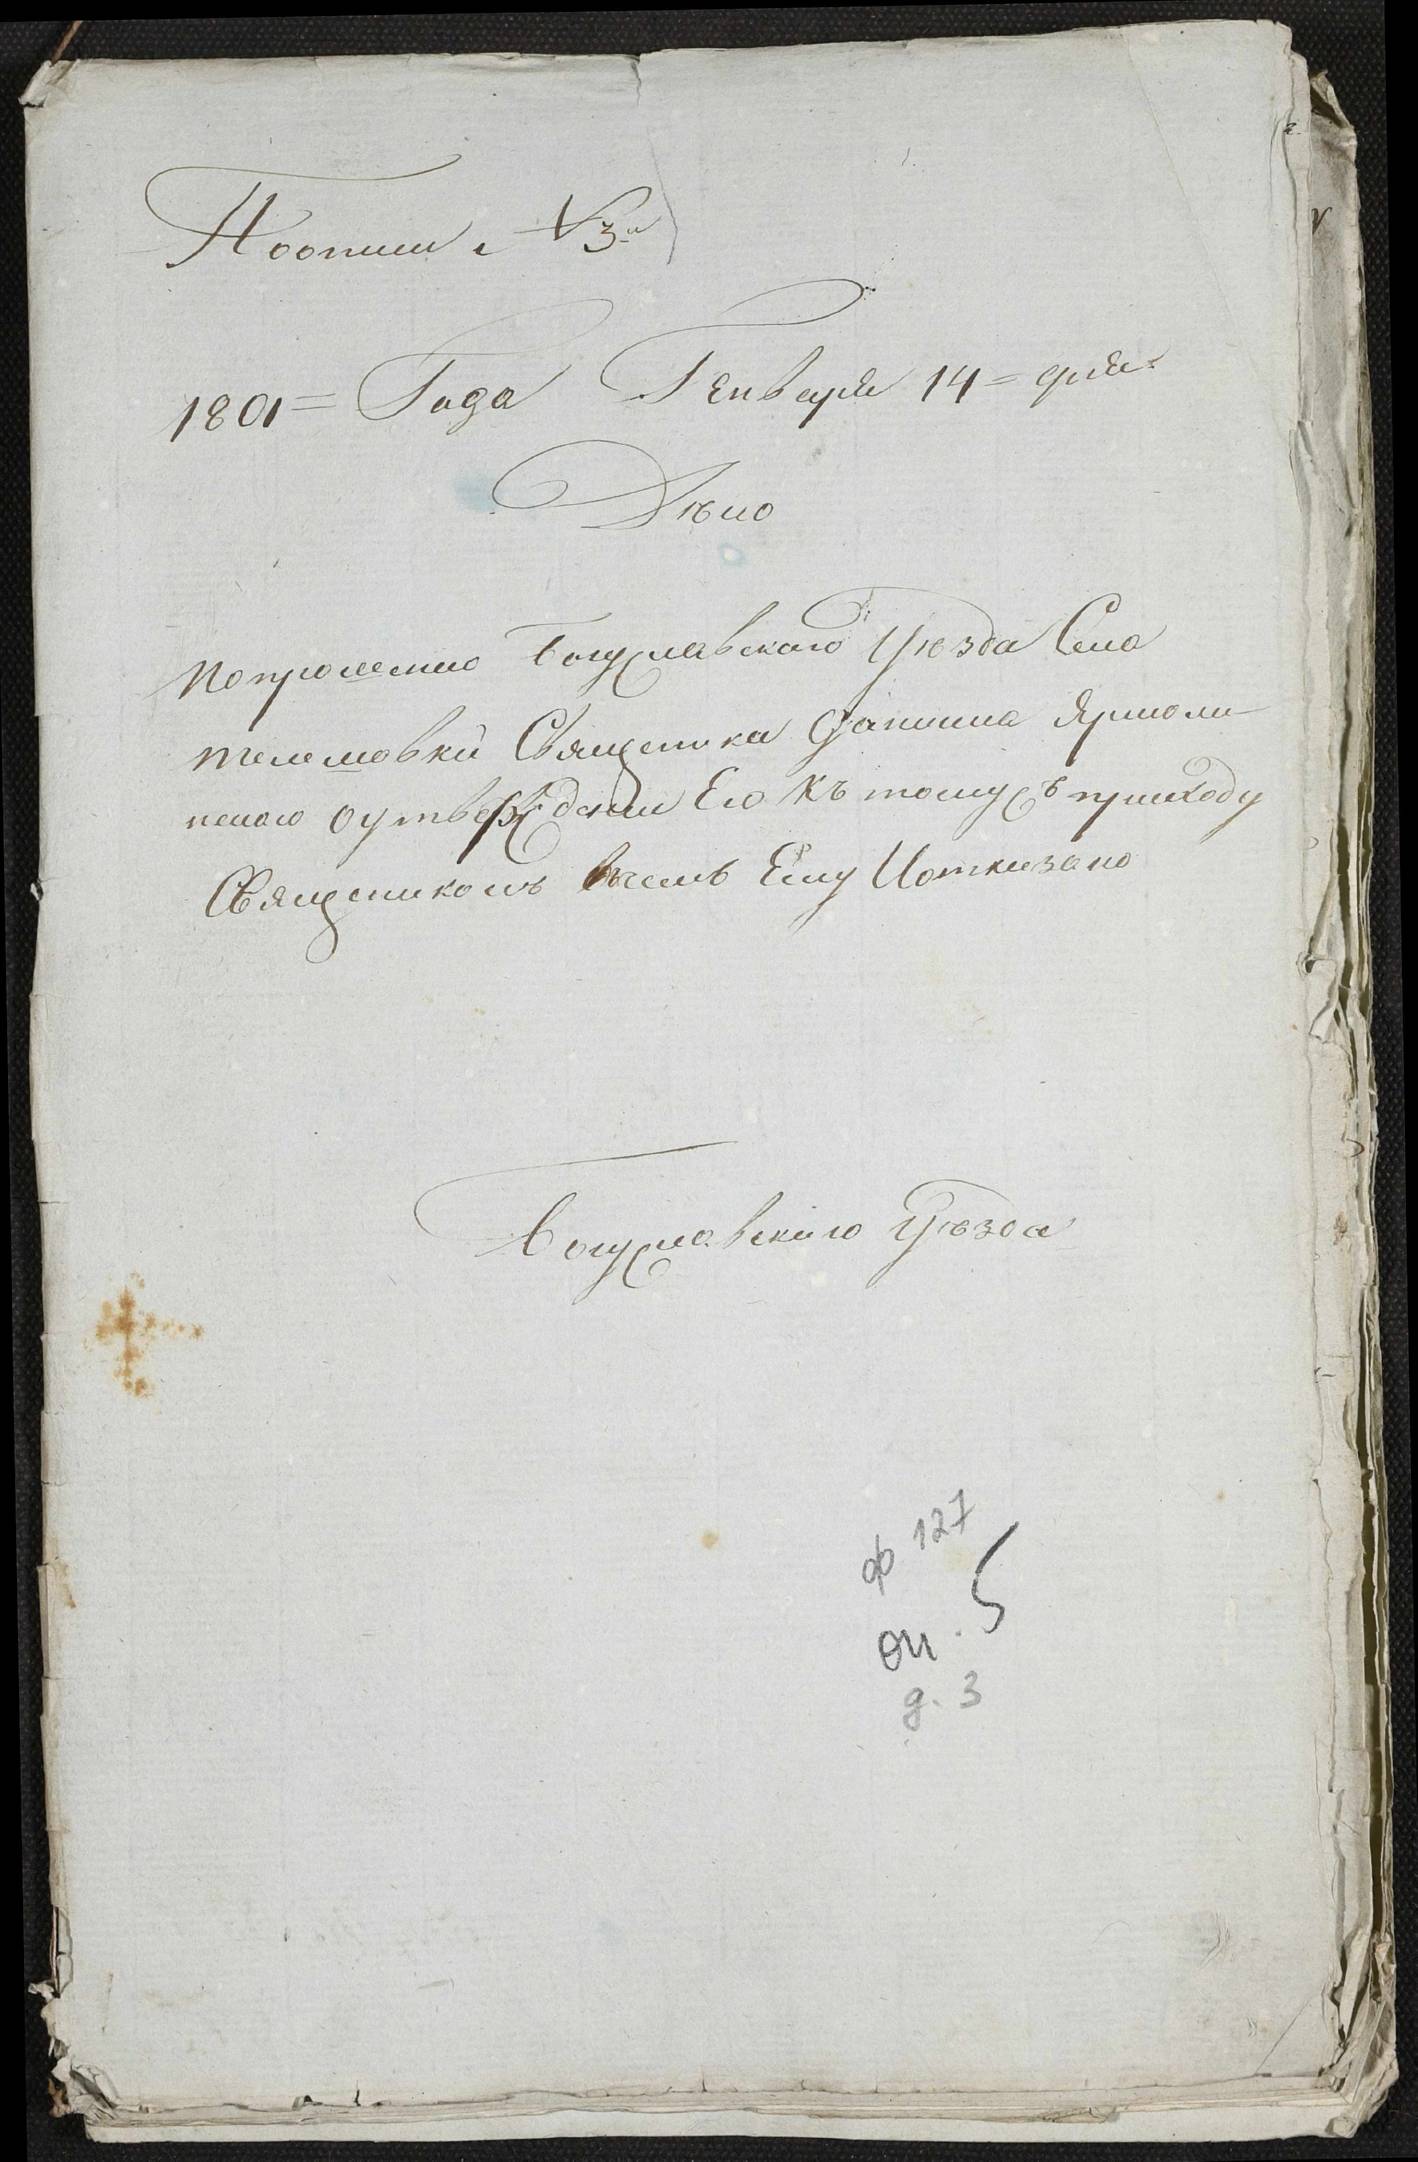 По описи № 3й
1801 = Года Генваря 14 = дня
Дѣло
по прошению Богуславского Уѣзда Села
телешовки Священика Даниила Ярмоли-
нского о утверждении Его къ тому ъ приходу
Священикомъ вчемъ Ему И отказано
Богуславского Уѣзда
ф 127
оп. 5
д. 3